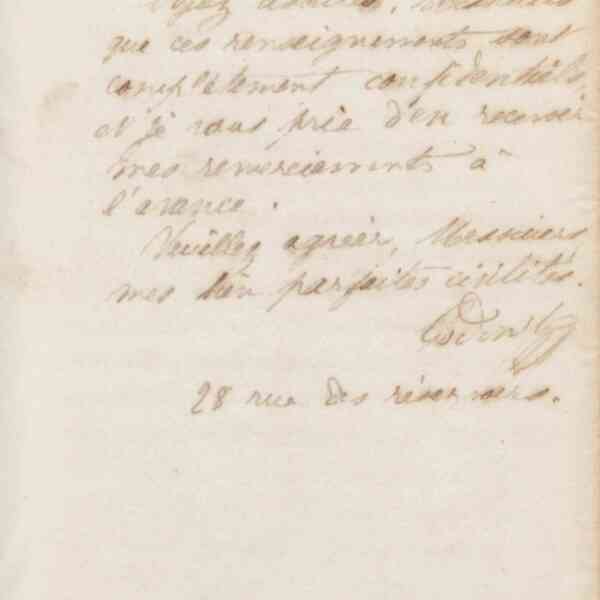 que ces renseignements sont
complètement confidentiels,
et je vous prie d'en recevoir
mes remerciements à
l'avance.
Veuillez agréer, Messieurs,
mes bien parfaites civilités.
28 rue des réservoirs.